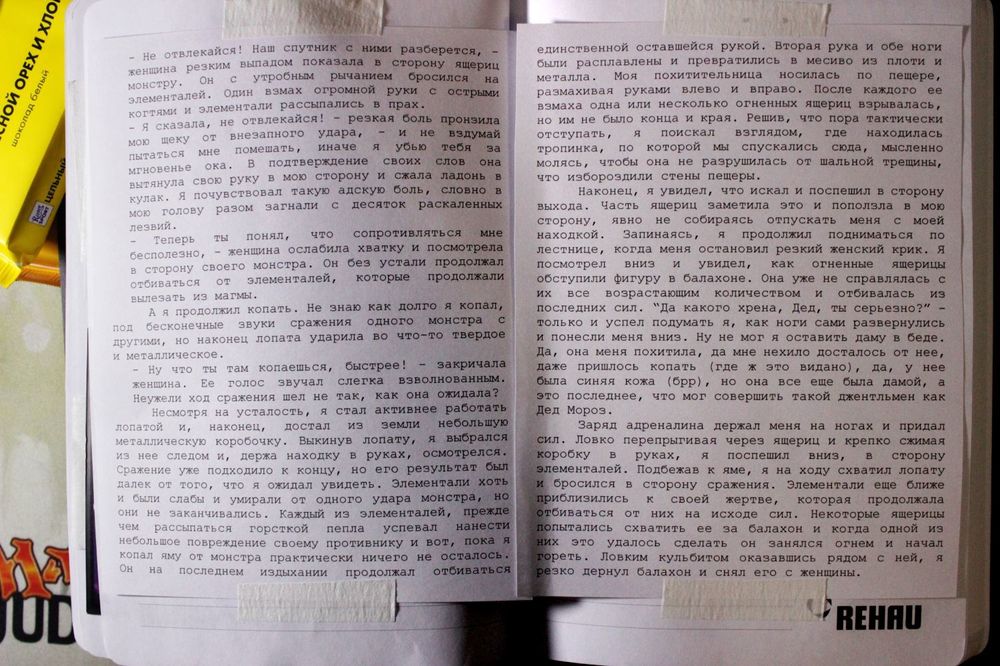 СНОЙ ОРЕХ И ХЛО
шоколад белый
ЦЕЛЬНЫЙ
- Не отвлекайся! Наш спутник с ними разберется, -
женщина резким выпадом показала в сторону ящериц
монстру. Он с утробным рычанием бросился на
элементалей. Один взмах огромной руки с острыми
когтями и элементали рассыпались в прах.
- Я сказала, не отвлекайся! - резкая боль пронзила
мою щеку от внезапного удара, - и не вздумай
пытаться мне помешать, иначе я убью тебя за
мгновенье ока. В подтверждение своих слов она
вытянула свою руку в мою сторону и сжала ладонь в
кулак. Я почувствовал такую адскую боль, словно в
мою голову разом загнали с десяток раскаленных
лезвий.
- Теперь ты понял, что сопротивляться мне
бесполезно, - женщина ослабила хватку и посмотрела
в сторону своего монстра. Он без устали продолжал
отбиваться от элементалей, которые продолжали
вылезать из магмы.
А я продолжил копать. Не знаю как долго я копал,
под бесконечные звуки сражения одного монстра с
другими, но наконец лопата ударила во что-то твердое
и металлическое.
- Ну что ты там копаешься, быстрее! - закричала
женщина. Ее голос звучал слегка взволнованным.
Неужели ход сражения шел не так, как она ожидала?
Несмотря на усталость, я стал активнее работать
лопатой и, наконец, достал из земли небольшую
металлическую коробочку. Выкинув лопату, я выбрался
из нее следом и, держа находку в руках, осмотрелся.
Сражение уже подходило к концу, но его результат был
далек от того, что я ожидал увидеть. Элементали хоть
и были слабы и умирали от одного удара монстра, но
они не заканчивались. Каждый из элементалей, прежде
чем рассыпаться горсткой пепла успевал нанести
небольшое повреждение своему противнику и вот, пока я
копал яму от монстра практически ничего не осталось.
Он на последнем издыхании продолжал отбиваться
единственной оставшейся рукой. Вторая рука и обе ноги
были расплавлены и превратились в месиво из плоти и
металла. Моя похитительница носилась по пещере,
размахивая руками влево и вправо. После каждого ее
взмаха одна или несколько огненных ящериц взрывалась,
но им не было конца и края. Решив, что пора тактически
отступать, я поискал взглядом, где находилась
тропинка, по которой мы спускались сюда, мысленно
молясь, чтобы она не разрушилась от шальной трещины,
что избороздили стены пещеры.
Наконец, я увидел, что искал и поспешил в сторону
выхода. Часть ящериц заметила это и поползла в мою
сторону, явно не собираясь отпускать меня с моей
находкой. Запинаясь, я продолжил подниматься по
лестнице, когда меня остановил резкий женский крик. Я
посмотрел вниз и увидел, как огненные ящерицы
обступили фигуру в балахоне. Она уже не справлялась с
их все возрастающим количеством и отбивалась из
последних сил. "Да какого хрена, Дед, ты серьезно?" -
только и успел подумать я, как ноги сами развернулись
и понесли меня вниз. Ну не мог я оставить даму в беде.
Да, она меня похитила, да мне нехило досталось от нее,
даже пришлось копать (где ж это видано), да, у нее
была синяя кожа (брр), но она все еще была дамой, а
это последнее, что мог совершить такой джентльмен как
Дед Мороз.
Заряд адреналина держал меня на ногах и придал
сил. Ловко перепрыгивая через ящериц и крепко сжимая
коробку в руках, я поспешил вниз, в сторону
элементалей. Подбежав к яме, я на ходу схватил лопату
и бросился в сторону сражения. Элементали еще ближе
приблизились к своей жертве, которая продолжала
отбиваться от них на исходе сил. Некоторые ящерицы
попытались схватить ее за балахон и когда одной из
них это удалось сделать он занялся огнем и начал
гореть. Ловким кульбитом оказавшись рядом с ней, я
резко дернул балахон и снял его с женщины.
REHAU
JUD